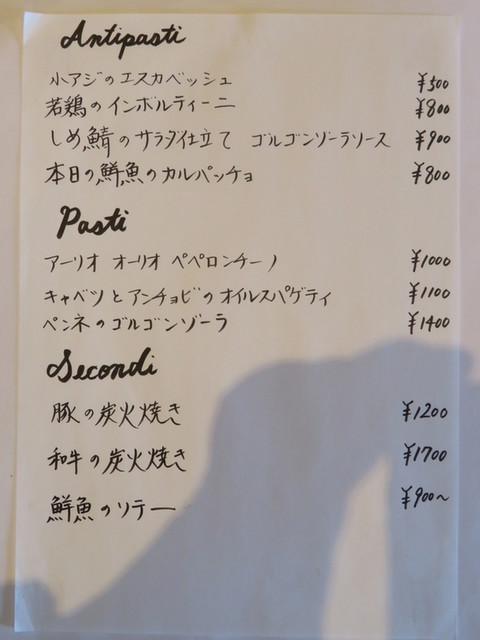 Antipasti
小アジのエスカベッシュ ¥500
若鶏のインボルティーニ ¥800
しめ鯖のサラダ仕立て ゴルゴンゾーラソース ¥900
本日の鮮魚のカルパッチョ ¥800
Pasti
アーリオ オーリオ ペペロンチーノ ¥1000
キャベツとアンチョビのオイルスパゲティ ¥1100
ペンネのゴルゴンゾーラ ¥1400
Secondi
豚の炭火焼き ¥1200
和牛の炭火焼き ¥1700
鮮魚のソテー ¥900〜